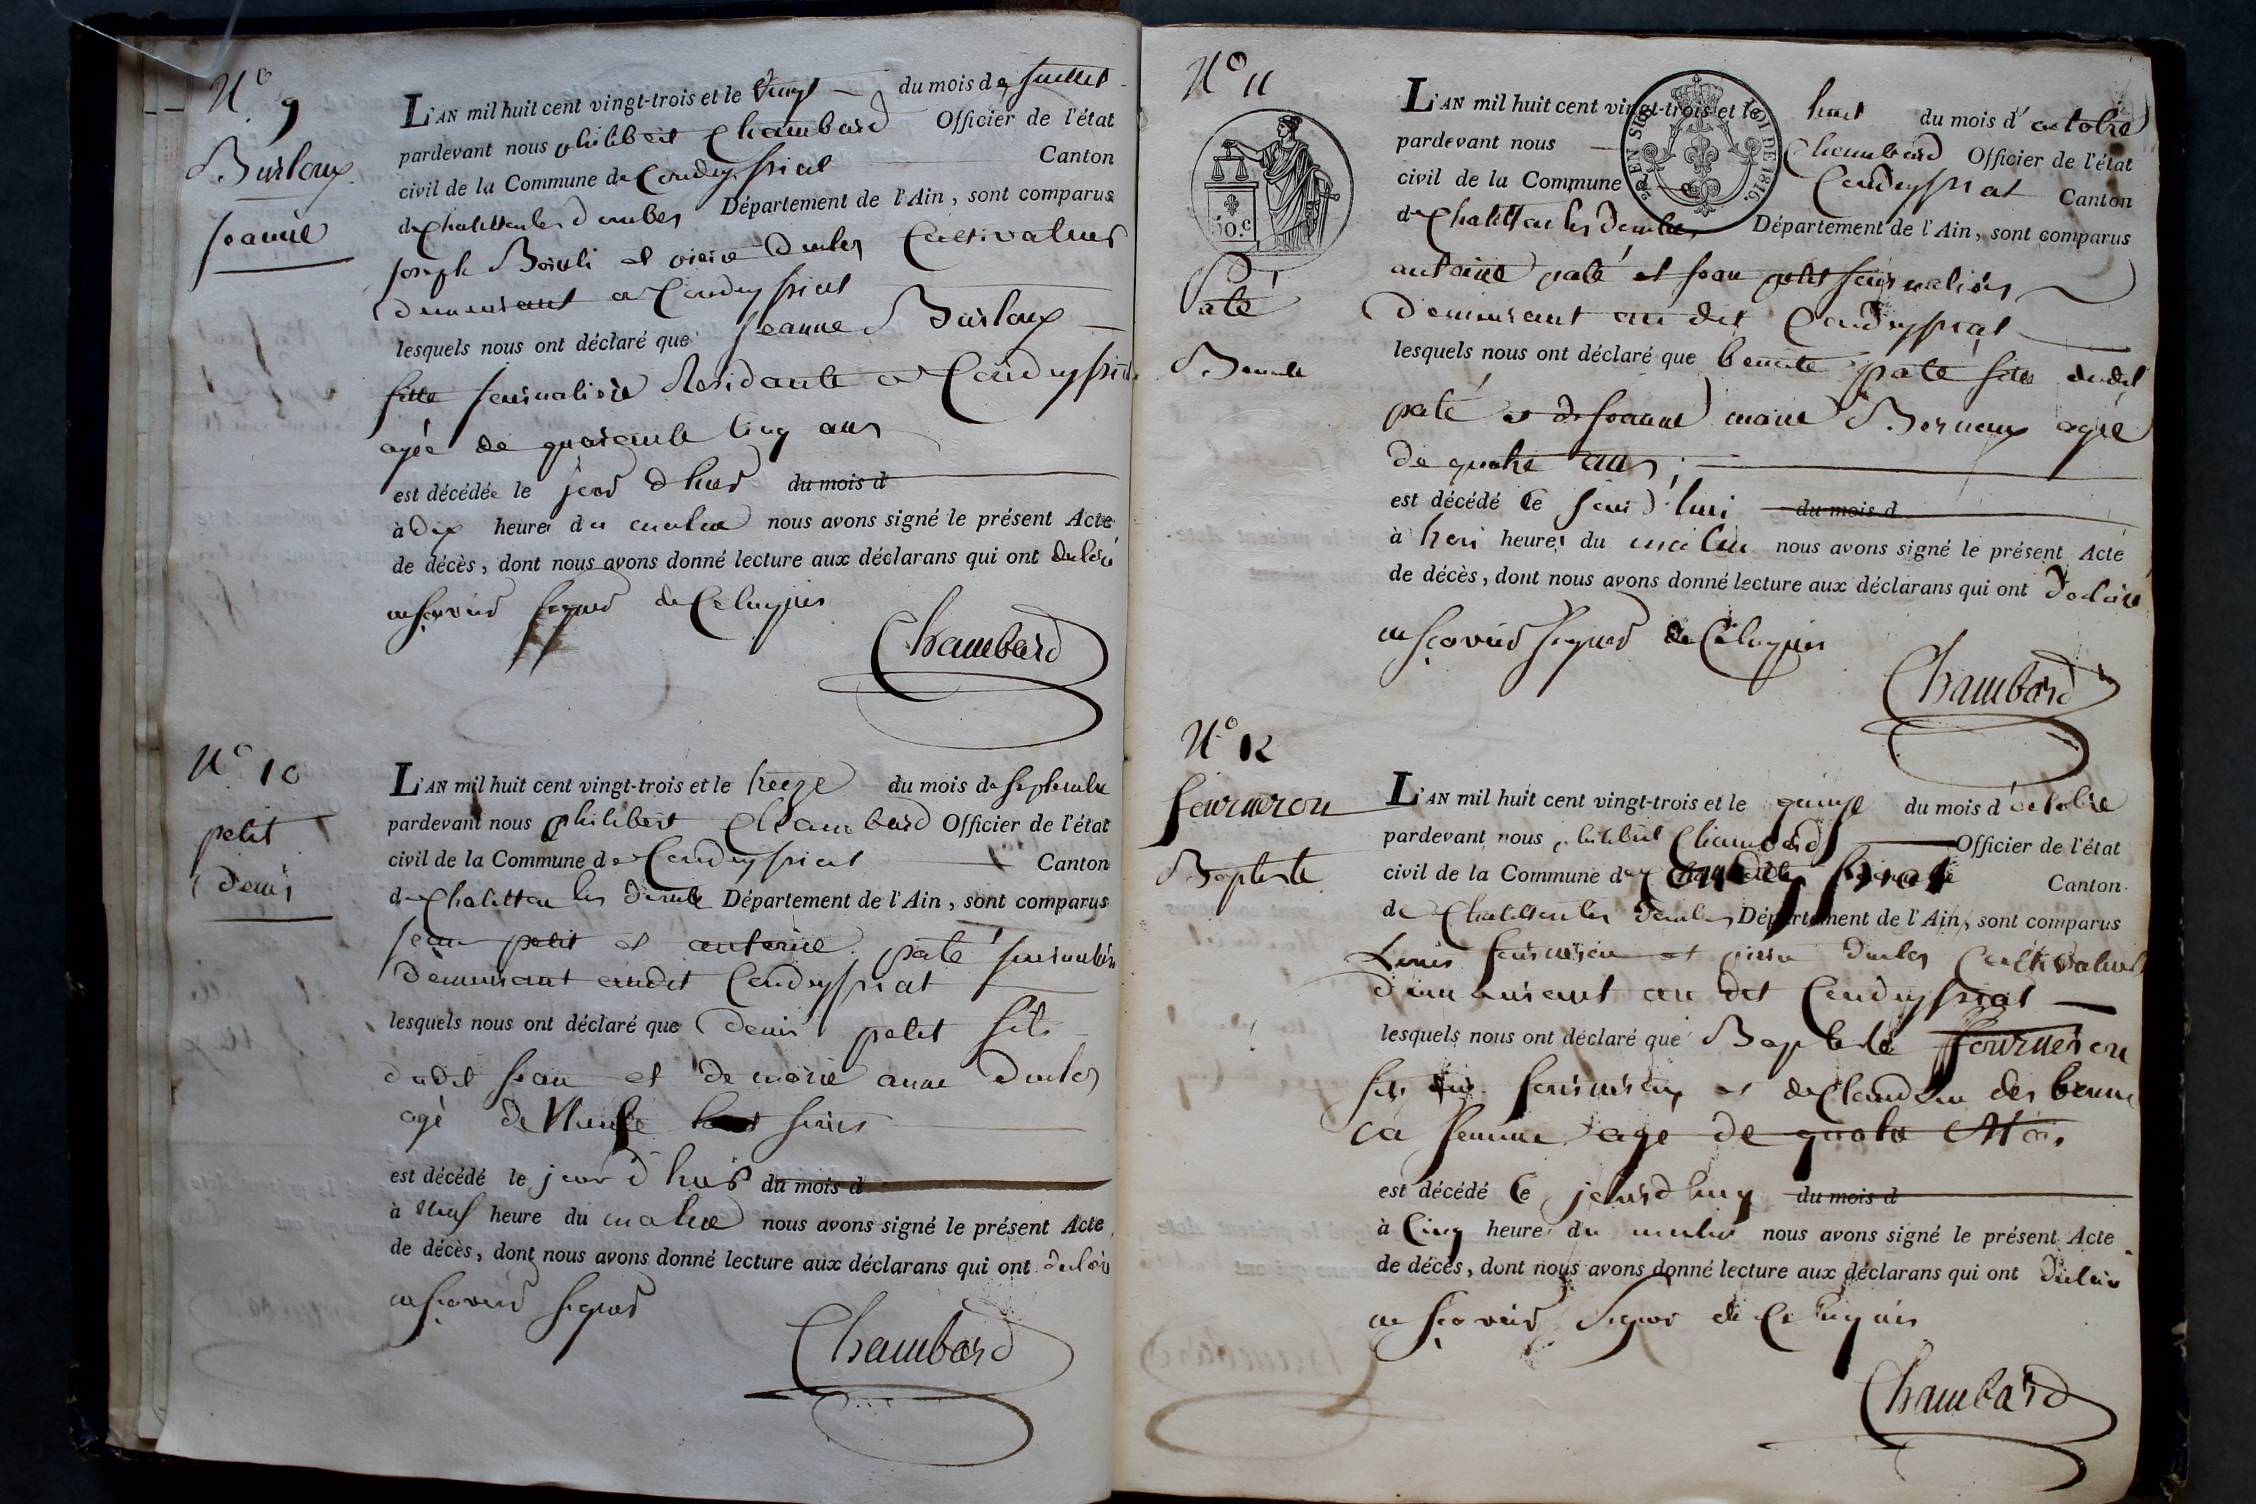 N° 9
Burloux
Jeanne
L'AN mil huit cent vingt-trois et le vingt du mois de Juillet
pardevant nous philibert Chambard Officier de l'état
civil de la Commune de Condeyssiat Canton
de Chatillon les dombes Département de l'Ain, sont comparus
Joseph et pierre Cultivateurs
demeurant a Condeyssiat
lesquels nous ont déclaré que Jeanne Burloux
fille Journaliere Residante a Condeyssiat
agée de quarante Cinq ans
est décédée le jour d'hui du mois d
à dix heure du matin nous avons signé le présent Acte
de décès, dont nous avons donné lecture aux déclarans qui ont declaré
ne scavoir signer de Ce Enquis
Chambard
N° 10
petit
denis
L'AN mil huit cent vingt-trois et le treize du mois de Septembre
pardevant nous philibert Chambard Officier de l'état
civil de la Commune de Condeyssiat Canton
de Chatillon les dombe Département de l'Ain, sont comparus
jean petit et antoine paté journaliers
demeurant audit Condeyssiat
lesquels nous ont déclaré que denis petit fils
dudit jean et de marie anne
agé de jours
est décédé le jour d'hui du mois d
à neuf heure du matin nous avons signé le présent Acte
de décès, dont nous avons donné lecture aux déclarans qui ont declaré
ne scavoir signer
Chambard
N° 11
50 c
Paté
Benoite
L'AN mil huit cent vingt-trois et le huit du mois d'octobre
pardevant nous Chambard Officier de l'état
civil de la Commune Condeyssiat Canton
de Chatillon les dombes Département de l'Ain, sont comparus
antoine paté et jean petit journaliers
demeurant au dit Condeyssiat
lesquels nous ont déclaré que benoite paté fille dudit
paté et de jeanne marie agée
de quatre ans
est décédé Ce jour d'hui du mois d
à trois heures du matin nous avons signé le présent Acte
de décès, dont nous avons donné lecture aux déclarans qui ont declaré
ne scavoir signer de Ce Enquis
Chambard
N° 12
fourneron
Baptiste
L'AN mil huit cent vingt-trois et le quinze du mois d'octobre
pardevant nous philibert Chambard Officier de l'état
civil de la Commune de Condeyssiat Canton
de Chatillon les dombes Département de l'Ain, sont comparus
Louis fourneron et pierre Cultivateurs
demeurant au dit Condeyssiat
lesquels nous ont déclaré que Baptiste fourneron
fils fourneron et de Claudine
sa femme age de quatre
est décédé Ce jourdhuy du mois d
à Cinq heure du matin nous avons signé le présent Acte
de décès, dont nous avons donné lecture aux déclarans qui ont declaré
ne scavoir signer de Ce enquis
Chambard